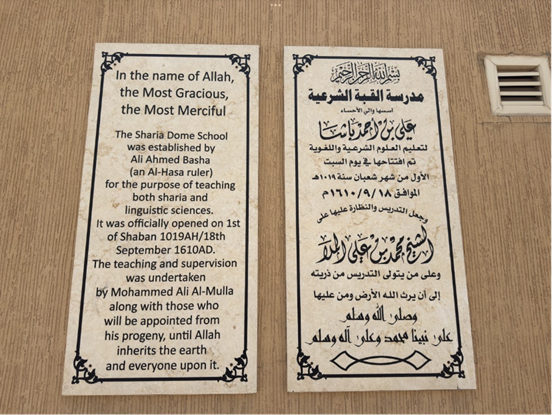 In the name of Allah,
the Most Gracious,
the Most Merciful
The Sharia Dome School
was established by
Ali Ahmed Basha
(an Al-Hasa ruler)
for the purpose of teaching
both sharia and
linguistic sciences.
It was officially opened on 1st
of Shaban 1019AH/18th
September 1610AD.
The teaching and supervision
was undertaken
by Mohammed Ali Al-Mulla
along with those who
will be appointed from
his progeny, until Allah
inherits the earth
and everyone upon it.
بسم الله الرحمن الرحيم
مدرسة القبة الشرعية
أسسها والي الأحساء
علي بن أحمد باشا
لتعليم العلوم الشرعية واللغوية
تم افتتاحها في يوم السبت
الأول من شهر شعبان سنة ١٠١٩هـ
الموافق ١٦١٠/٩/١٨م
وجعل التدريس والنظارة عليها على
الشيخ محمد بن علي الملا
وعلى من يتولى التدريس من ذريته
إلى أن يرث الله الأرض ومن عليها
وصلى الله وسلم
على نبينا محمد وعلى آله وسلم